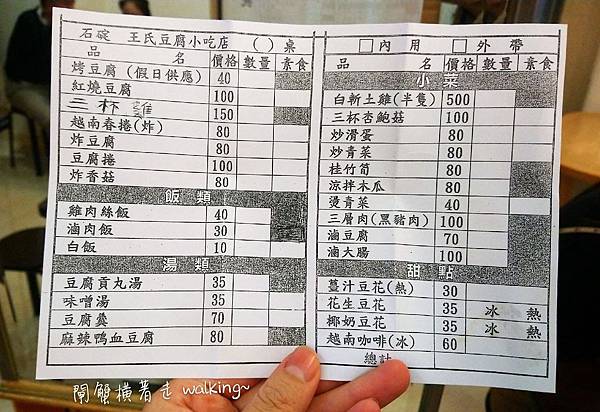 石碇 王氏豆腐小吃店 ( )桌
品 名 價格 數量 素食
烤豆腐(假日供應) 40
紅燒豆腐 100
三杯雞 150
越南春捲(炸) 80
炸豆腐 80
豆腐捲 100
炸香菇 80
飯類
雞肉絲飯 40
滷肉飯 30
白飯 10
湯類
豆腐貢丸湯 35
味噌湯 35
豆腐羹 70
麻辣鴨血豆腐 80
□內用 □外帶
品 名 價格 數量 素食
小菜
白斬土雞(半隻) 500
三杯杏鮑菇 100
炒滑蛋 80
炒青菜 80
桂竹筍 80
涼拌木瓜 80
燙青菜 40
三層肉(黑豬肉) 100
滷豆腐 70
滷大腸 100
甜點
薑汁豆花(熱) 30
花生豆花 35 冰 熱
椰奶豆花 35 冰 熱
越南咖啡(冰) 60
總計
閒蟹橫著走 walking~